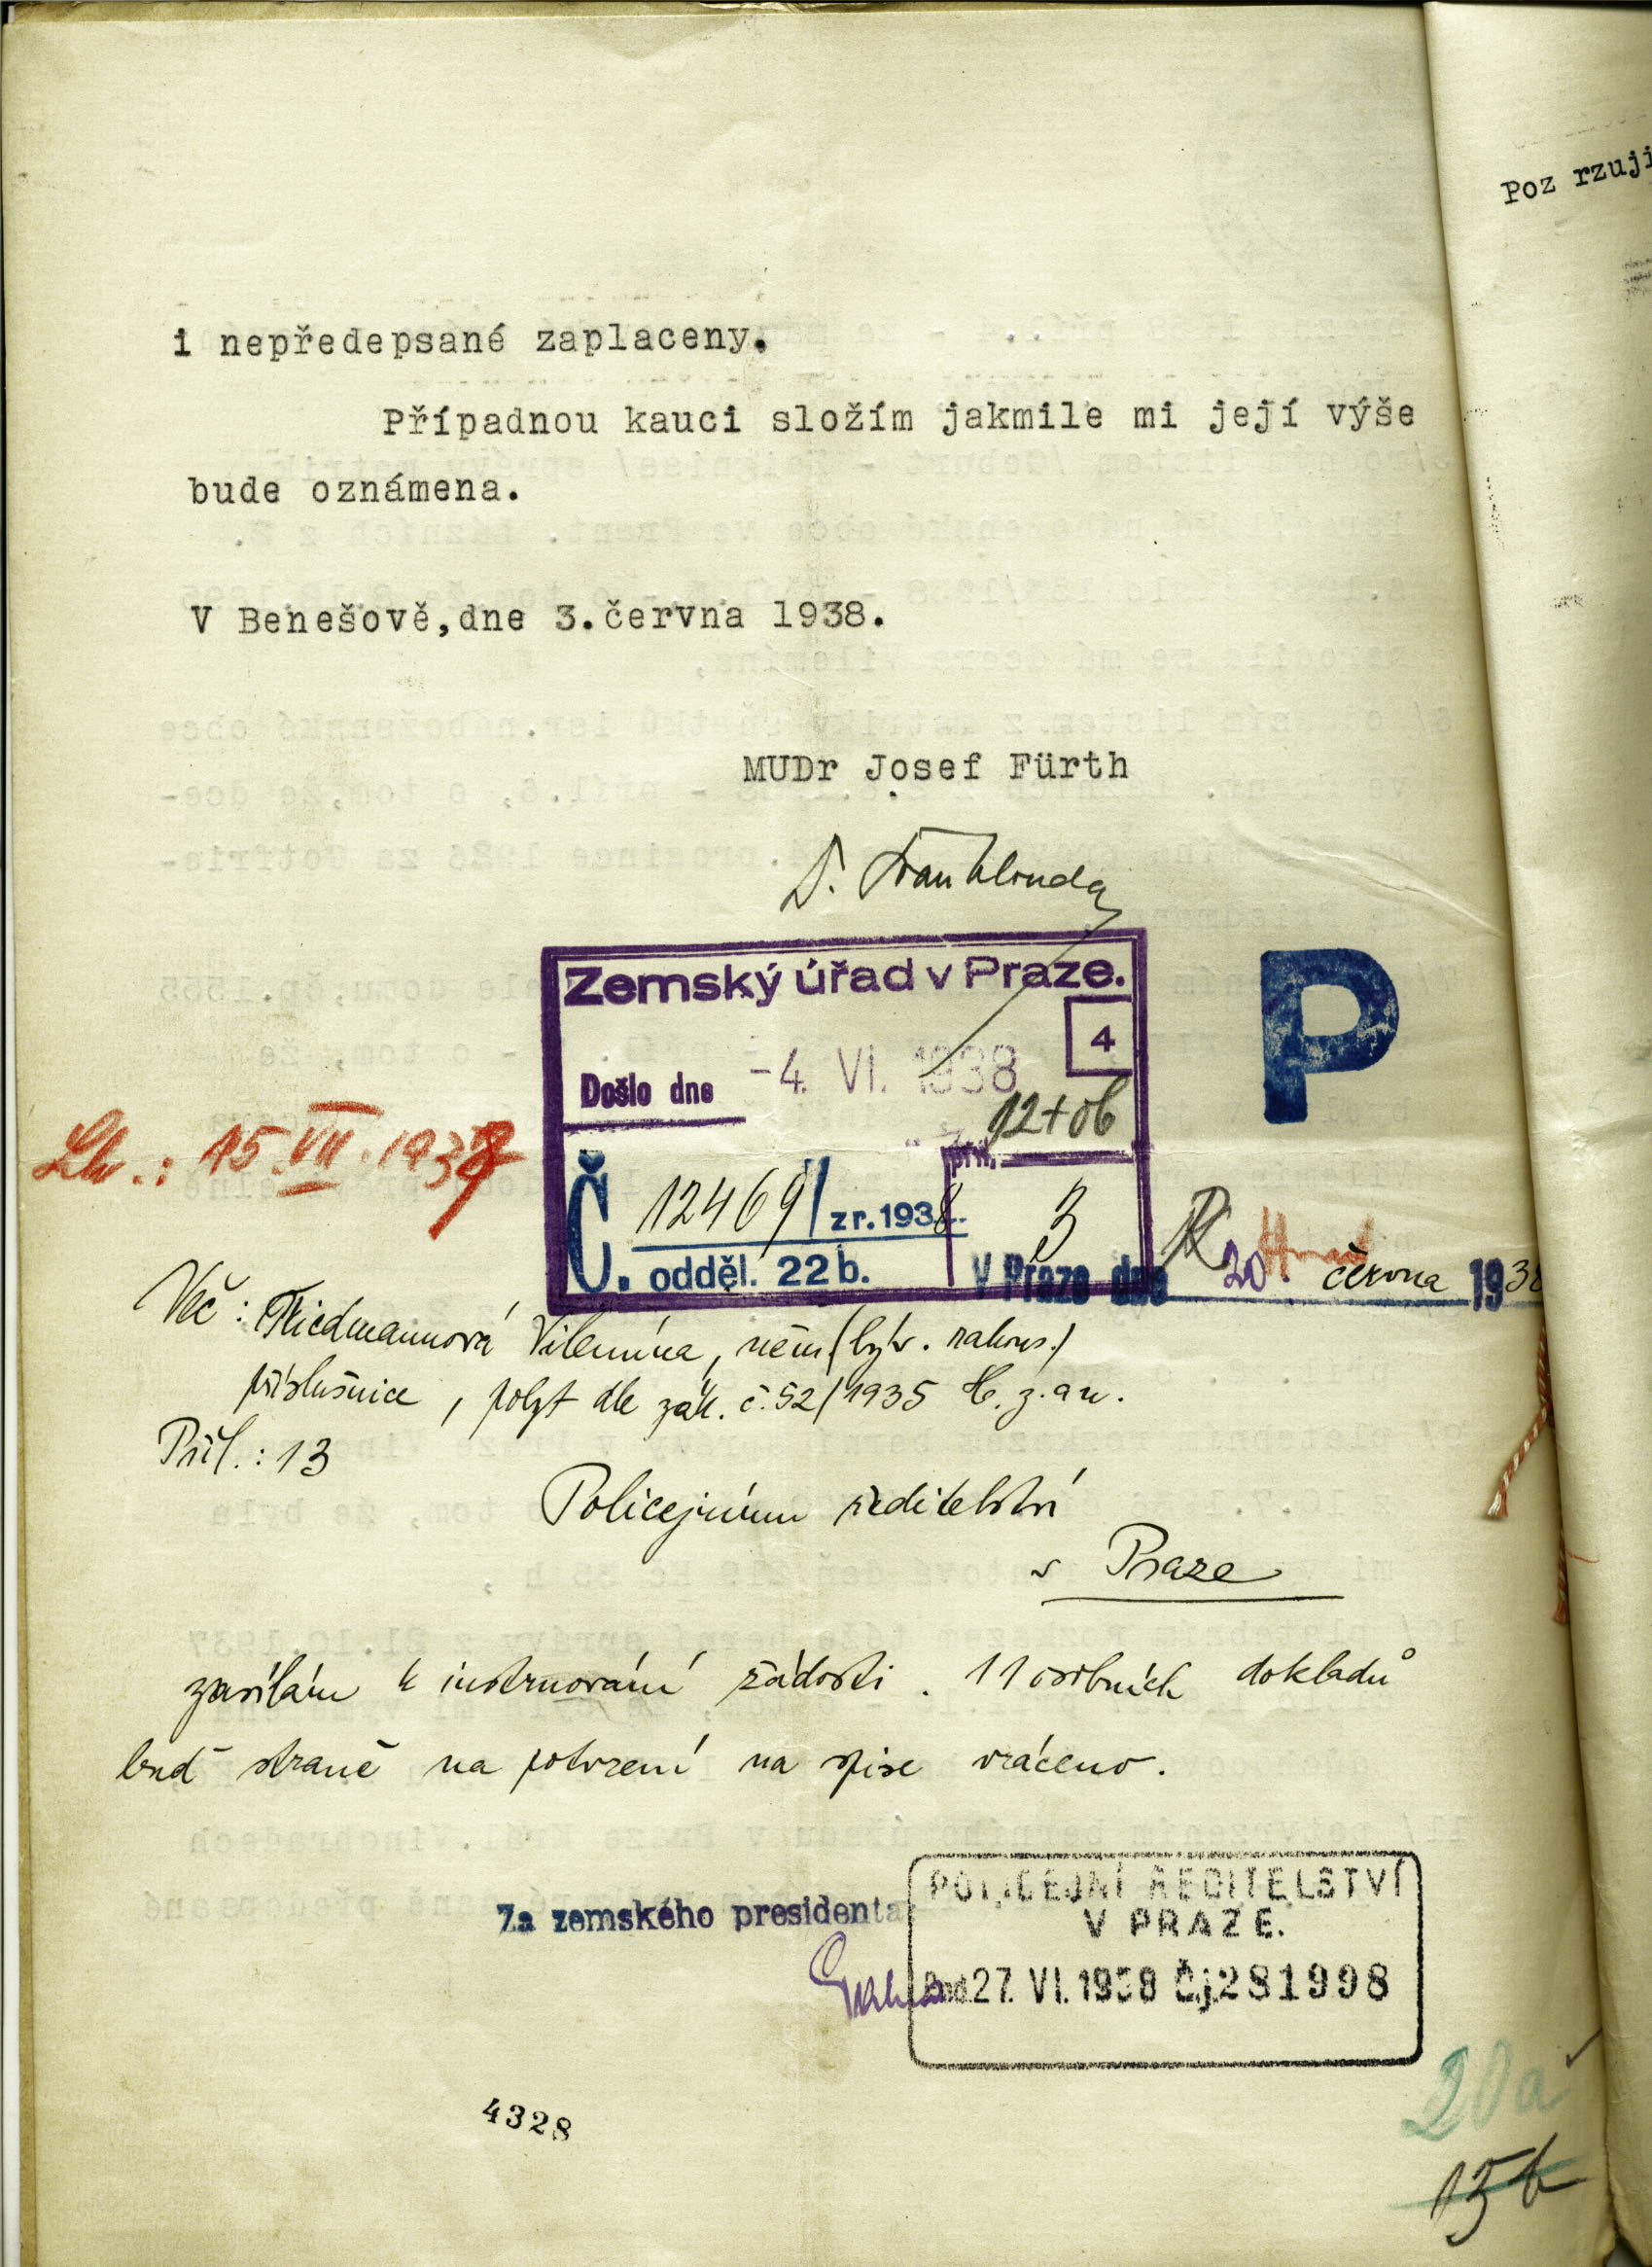 Poz rzuji
i nepředepsané zaplaceny.
Případnou kauci složím jakmile mi její výše
bude oznámena.
V Benešově,dne 3.června 1938.
MUDr Josef Fürth
Zemský úřad v Praze.
4
Došlo dne -4. VI. 1938
12+ob
příl.
Č. 12469/ z r. 1938
3
odděl. 22b.
P
15.VII.1938
V Praze dne 20. června 1938
Věc: Friedmannová Vilemína, něm (býv. rakous.)
příslušnice, pobyt dle zák. č. 52/1935 Sb. z. a n.
Příl.: 13
Policejnímu ředitelství
v Praze
zasílám k instruování žádosti. 11 osobních dokladů
buď straně na potvrzení na spise vráceno.
Za zemského presidenta
POLICEJNÍ ŘEDITELSTVÍ
V PRAZE.
27. VI. 1938 Č.j. 281998
4328
20a
15b